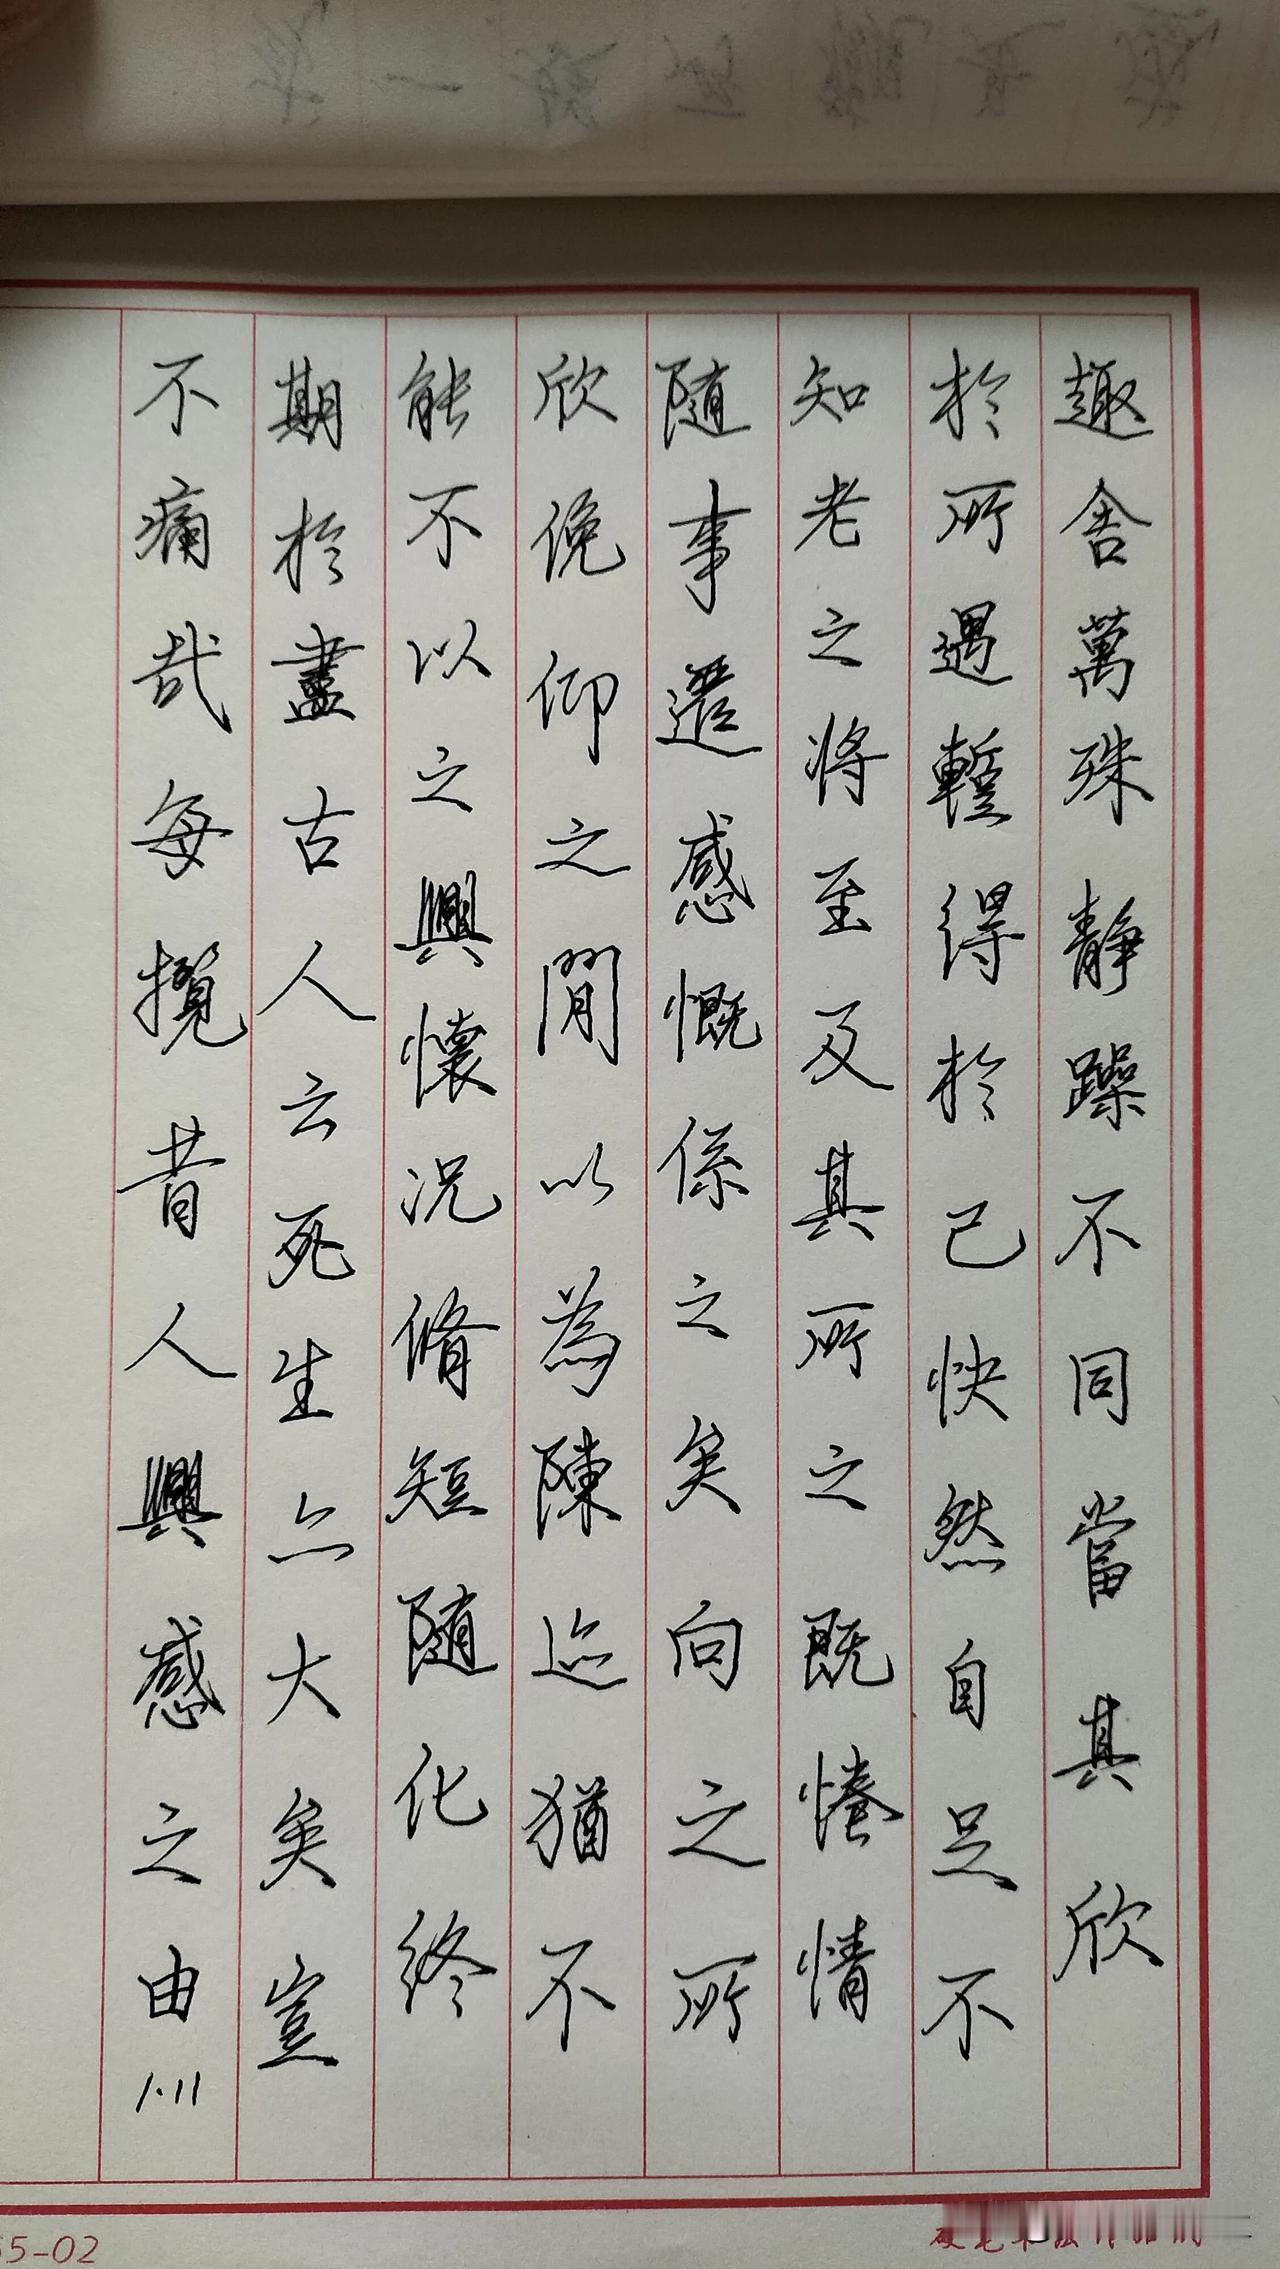 趣舍萬殊静躁不同當其欣
於所遇蹔得於己快然自足不
知老之将至及其所之既惓情
随事遷感慨係之矣向之所
欣俛仰之閒以為陳迹猶不
能不以之興懷况脩短随化終
期於盡古人云死生亦大矣豈
不痛哉每攬昔人興感之由
1.11
5-02